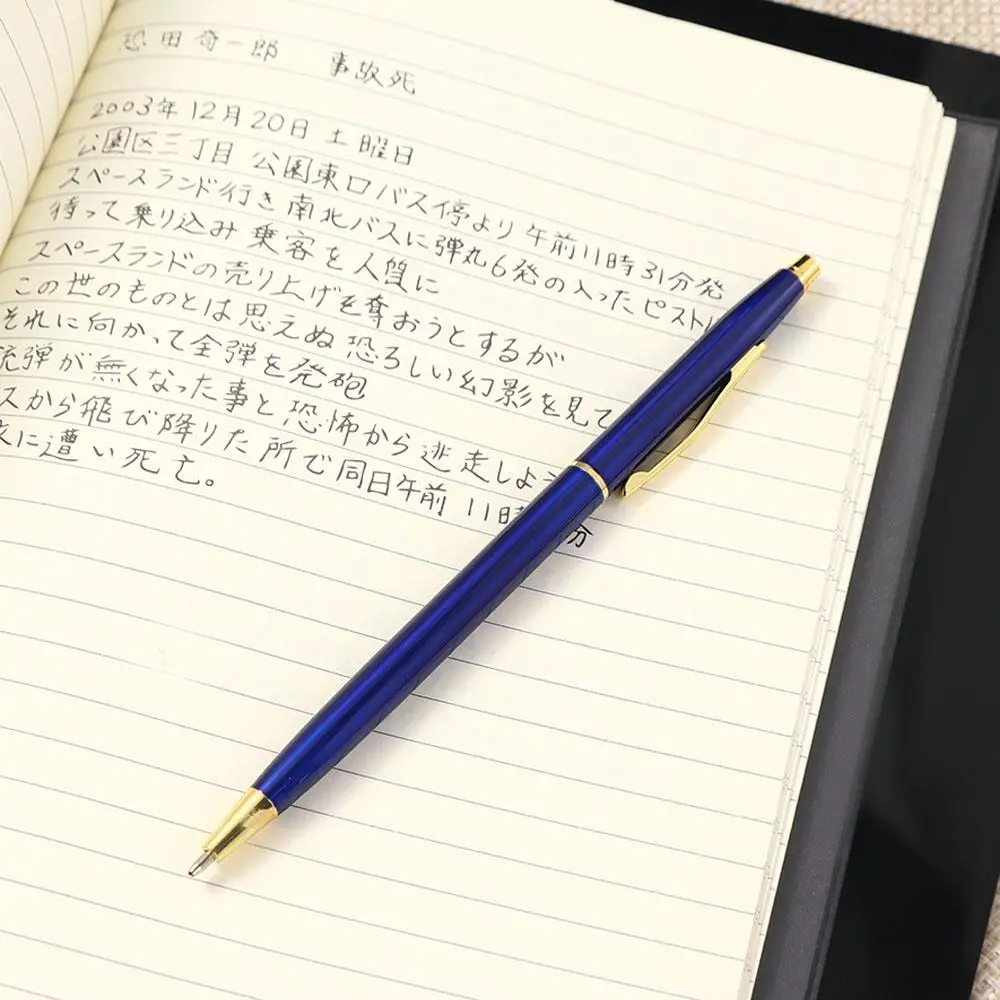 恐田奇一郎 事故死
2003年12月20日 土曜日
公園区三丁目 公園東口バス停より午前11時31分発
スペースランド行き南北バスに弾丸6発の入ったピストル
待って乗り込み 乗客を人質に
スペースランドの売り上げを奪おうとするが
この世のものとは思えぬ恐ろしい幻影を見て
それに向かって全弾を発砲
銃弾が無くなった事と恐怖から逃走しよ
スから飛び降りた所で同日午前11時 分
に遭い死亡。